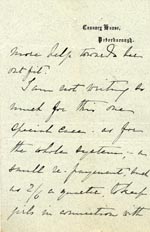 Precentor's House,
Peterborough.
more help towards her
outfit.
I am not writing so
much for this one
special case - as for
the whole system - a
small re-payment and
as 2/6 a quarter to keep
girls in connection with